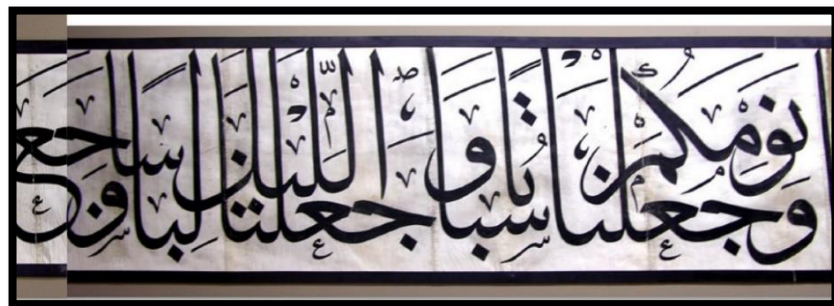 وَجَعَلْنَا نَوْمَكُمْ سُبَاتًا وَجَعَلْنَا اللَّيْلَ لِبَاسًا وَجَعَ